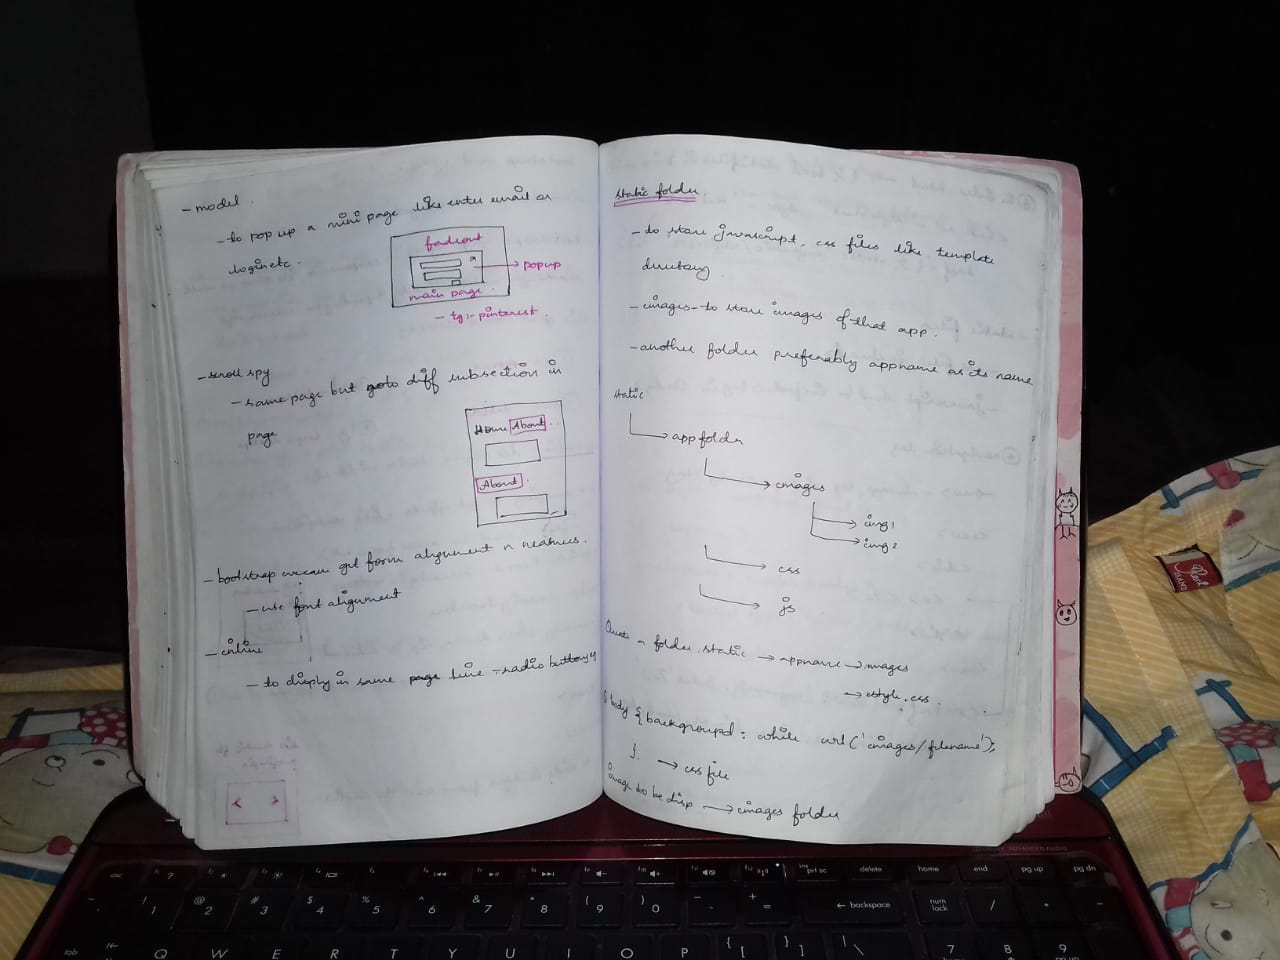 - model.
- to pop up a mini page like enter email or
login etc.
fadeout
popup
main page.
- eg:- pinterest.
- scroll spy
- same page but goto diff subsection in
page
Home About
About
- bootstrap we can get form alignment n neatness.
- use font alignment
- inline
- to display in same page line - radio button eg
static folder
- to store javascript, css files like template
directory.
- images - to store images of that app.
- another folder preferably appname as its name
static
app folder
images
img 1
img 2
css
js
folder static → appname → images
→ style.css
body { background: white url('images/filename');
} → css file
image to be disp → images folder
esc
prt sc
delete
home
end
pg up
pg dn
backspace
num lock
tab
Q W E R T Y U I O P
1 2 3 4 5 6 7 8 9 0
7 8 9